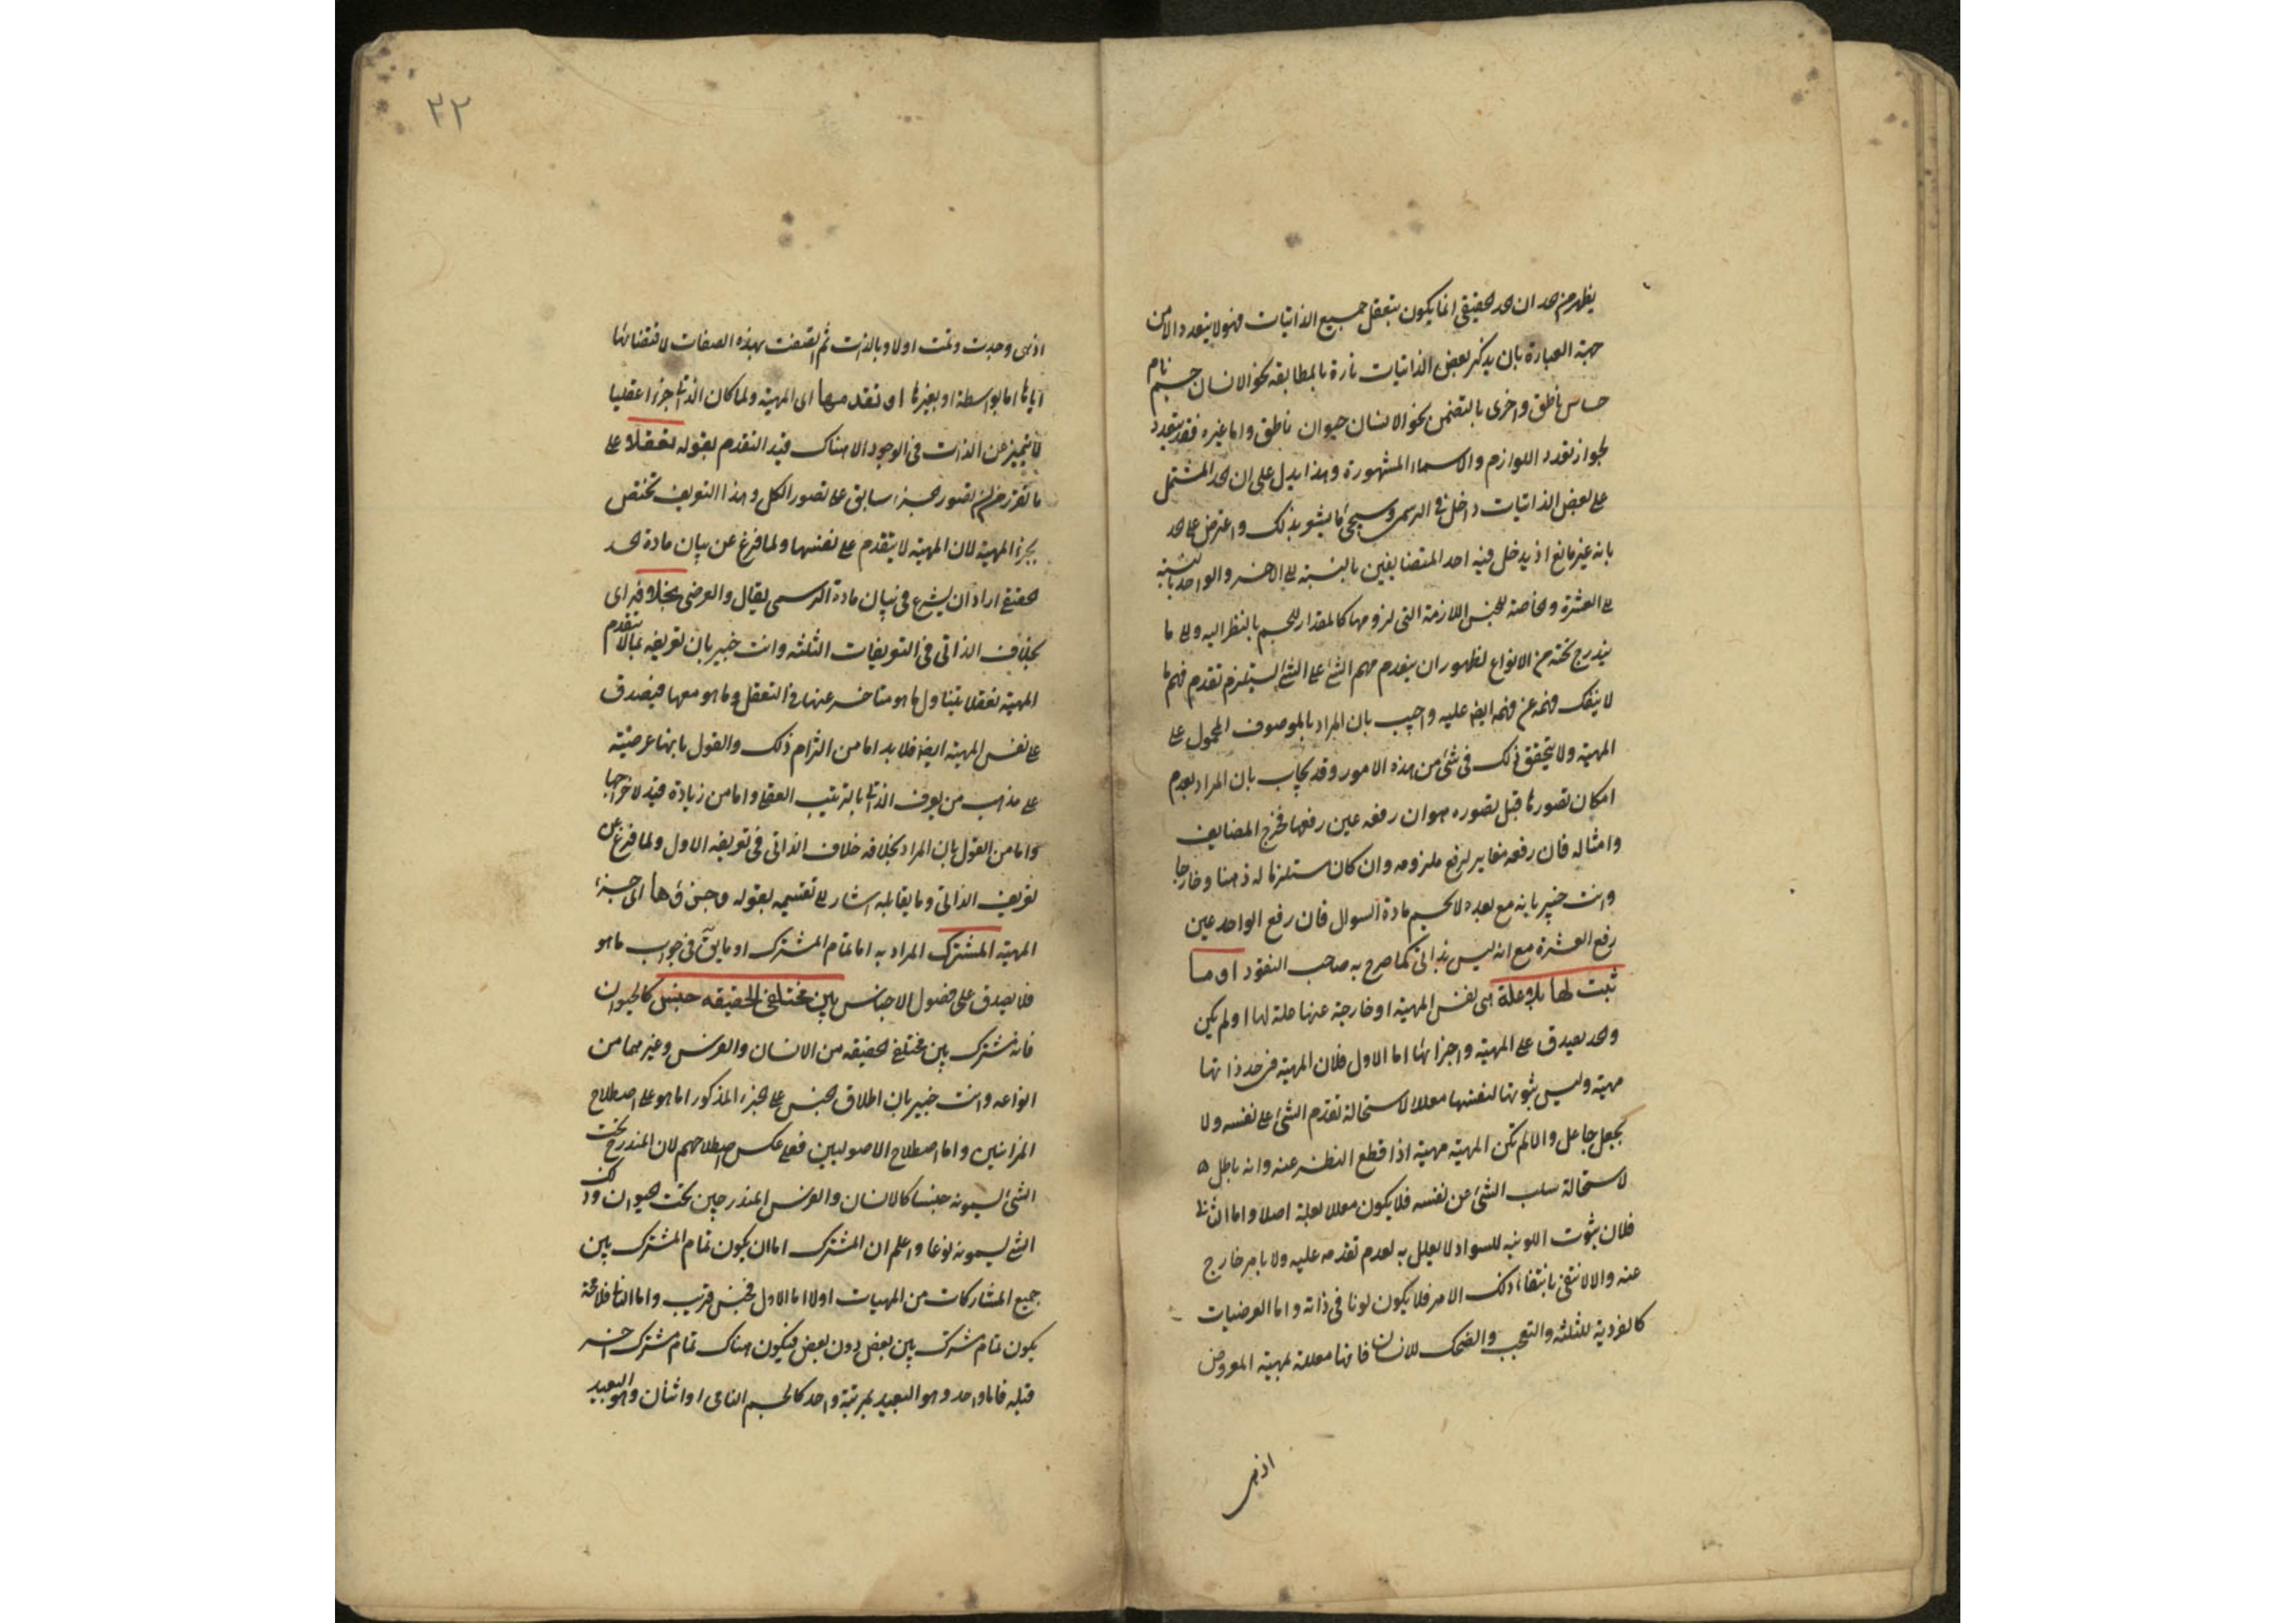 يظهر من حد ان الحد الحقيقي انما يكون بتعقل جميع الذاتيات فهو لا يتعدد الا من
جهة العبارة بان يذكر بعض الذاتيات تارة بالمطابقة نحو الانسان جسم نام
حساس ناطق واخرى بالتضمن نحو الانسان حيوان ناطق واما غيره فقد يتعدد
لجواز تعدد اللوازم والاسماء المشهورة وهذا يدل على ان الحد المشتمل
على بعض الذاتيات داخل في الرسمي وسيجئ ما يشعر بذلك واعترض على الحد
بانه غير مانع اذ يدخل فيه احد المتضايفين بالنسبة الى الاخر والواحد بالنسبة
الى العشرة والخاصة للجنس اللازمة التي لزومها كالمقدار للجسم بالنظر اليه والى ما
يندرج تحته من الانواع لظهور ان تقدم فهم الشئ على الشئ يستلزم تقدم فهم ما
لا ينفك فهمه عن فهمه ايضا عليه واجيب بان المراد بالموصوف المحمول على
المهية ولا يتحقق ذلك في شئ من هذه الامور وقد يجاب بان المراد بعدم
امكان تصورها قبل تصوره هو ان رفعه عين رفعها فخرج المضايف
وامثاله فان رفعه مغاير لرفع ملزومه وان كان مستلزما له ذهنا وخارجا
وانت خبير بانه مع بعده لا يحسم مادة السوال فان رفع الواحد عين
رفع العشرة مع انه ليس بذاتى كما صرح به صاحب النقود او ما
ثبت لها بلا علة هى نفس المهية او خارجة عنها علة لها اولم يكن
والحد يصدق على المهية واجزائها اما الاول فلان المهية في حد ذاتها
مهية وليس ثبوتها لنفسها معللا لاستحالة تقدم الشئ على نفسه ولا
بجعل جاعل والا لم تكن المهية مهية اذا قطع النظر عنه وانه باطل
لاستحالة سلب الشئ عن نفسه فلا يكون معللا بعلة اصلا واما الثانى
فلان ثبوت اللونية للسواد لا يعلل به لعدم تقدمه عليه ولا بامر خارج
عنه والا لانتفى بانتفاء ذلك الامر فلا يكون لونا في ذاته واما العرضيات
كالفردية للثلثة والتعجب والضحك للانسان فانها معللة بمهية المعروض
اذ هى
٣٢
اذ هى وجدت وتمت اولا وبالذات ثم اتصفت بهذه الصفات لاقتضائها
اياها اما بواسطة او بغيرها او تقدمها اى المهية ولما كان الذاتى جزءا عقليا
لا يتميز عن الذات في الوجود الا هناك قيد التقدم بقوله تعقلا على
ما تقرر من ان تصور الجزء سابق على تصور الكل وهذا التعريف تختص
بجزء المهية لان المهية لا يتقدم على نفسها ولما فرغ عن بيان مادة الحد
الحقيقى اراد ان يشرع في بيان مادة الرسمى فقال والعرضى بخلافه اى
بخلاف الذاتى فى التعريفات الثلثة وانت خبير بان تعريفه بما لا يتقدم
المهية تعقلا يتناول ما هو متاخر عنها في التعقل وما هو معها فيصدق
على نفس المهية ايضا فلا بد اما من التزام ذلك والقول بانها عرضية
على مذهب من يعرف الذاتى بالترتيب العقلى واما من زيادة قيد لاخراجها
واما من القول بان المراد بخلافه خلاف الذاتى فى تعريفه الاول ولما فرغ عن
تعريف الذاتى وما يقابله اشار الى تقسيمه بقوله وجزؤها اى جزء
المهية المشترك المراد به اما تمام المشترك او ما يق فى جواب ما هو
فلا يصدق على فصول الاجناس بين مختلفى الحقيقة جنس كالحيوان
فانه مشترك بين مختلفى الحقيقة من الانسان والفرس وغيرهما من
انواعه وانت خبير بان اطلاق الجنس على الجزء المذكور اما هو على اصطلاح
الميزانيين واما اصطلاح الاصوليين فعلى عكس اصطلاحهم لان المندرج تحت
الشئ يسمونه جنسا كالانسان والفرس المندرجين تحت الحيوان وذلك
الشئ يسمونه نوعا واعلم ان المشترك اما ان يكون تمام المشترك بين
جميع المشاركات من المهيات اولا اما الاول فجنس قريب واما الثانى فلا محة
يكون تمام مشترك بين بعض دون بعض فيكون هناك تمام مشترك اخر
قبله فاما واحد وهو البعيد بمرتبة واحد كالجسم النامى او اثنان وهو البعيد